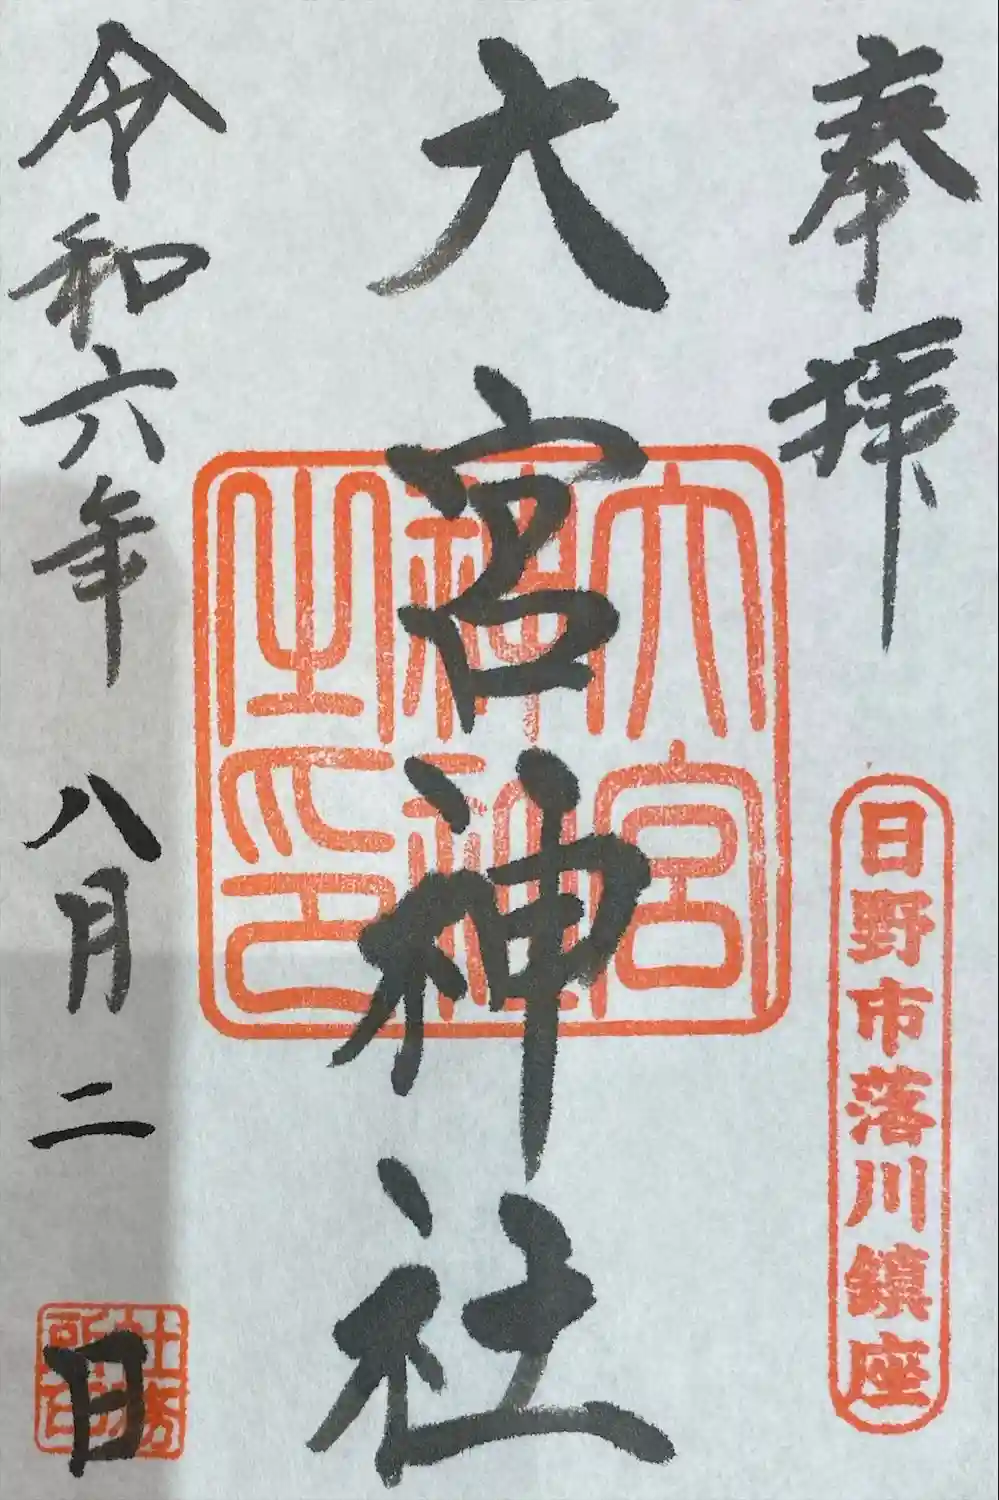 奉拝
日野市落川鎮座
大宮神社
大宮神社之印
令和六年八月二日
社務所印